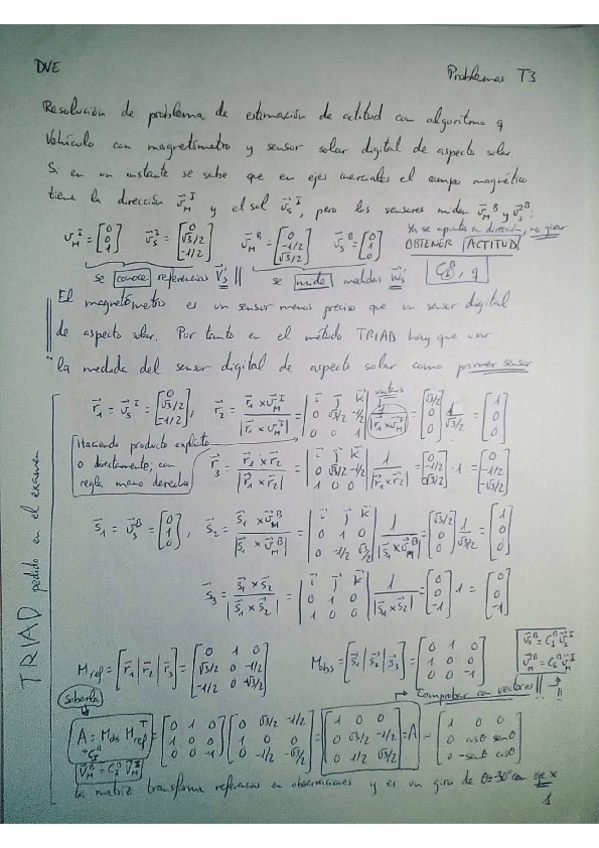 DVE
Problemas T3
Resolución de problema de estimación de actitud con algoritmo q
Vehículo con magnetómetro y sensor solar digital de aspecto solar
Si en un instante se sabe que en ejes inerciales el campo magnético
tiene la dirección v⃗_M^I y el sol v⃗_S^I, pero los sensores miden v⃗_M^B y v⃗_S^B:
v_M^I = [0 0 1] v⃗_S^I = [0 √3/2 -1/2] v⃗_M^B = [0 -1/2 √3/2] v⃗_S^B = [0 1 0]
Ya se apunta en dirección, no girar
OBTENER ACTITUD
C_I^B, q
se conoce referencias V⃗s || se mide medidas W⃗s
El magnetómetro es un sensor menos preciso que un sensor digital
de aspecto solar. Por tanto en el método TRIAD hay que usar
la medida del sensor digital de aspecto solar como primer sensor
TRIAD pedido en el examen
r⃗1 = v⃗_S^I = [0 √3/2 -1/2], r⃗2 = r⃗1 × v⃗_M^I / |r⃗1 × v⃗_M^I| = |i j k; 0 √3/2 -1/2; 0 0 1| 1/|r⃗1 × v⃗_M^I| = [√3/2 0 0] 1/√3/2 = [1 0 0]
Haciendo producto explícito
o directamente, con
regla mano derecha
r⃗3 = r⃗1 × r⃗2 / |r⃗1 × r⃗2| = |i j k; 0 √3/2 -1/2; 1 0 0| 1/|r⃗1 × r⃗2| = [0 -1/2 -√3/2] · 1 = [0 -1/2 -√3/2]
s⃗1 = v⃗_S^B = [0 1 0], s⃗2 = s⃗1 × v⃗_M^B / |s⃗1 × v⃗_M^B| = |i j k; 0 1 0; 0 -1/2 √3/2| 1/|s⃗1 × v⃗_M^B| = [√3/2 0 0] 1/√3/2 = [1 0 0]
s⃗3 = s⃗1 × s⃗2 / |s⃗1 × s⃗2| = |i j k; 0 1 0; 1 0 0| 1/|s⃗1 × s⃗2| = [0 0 -1] · 1 = [0 0 -1]
M_ref = [r⃗1 | r⃗2 | r⃗3] = [0 1 0; √3/2 0 -1/2; -1/2 0 -√3/2]
M_obs = [s⃗1 | s⃗2 | s⃗3] = [0 1 0; 1 0 0; 0 0 -1]
v⃗_S^B = C_I^B v⃗_S^I
v⃗_M^B = C_I^B v⃗_M^I
Saberla
Comprobar con vectores || !!
A = M_obs M_ref^T = [0 1 0; 1 0 0; 0 0 -1] [0 √3/2 -1/2; 1 0 0; 0 -1/2 -√3/2] = [1 0 0; 0 √3/2 -1/2; 0 1/2 √3/2] = A ~ [1 0 0; 0 cosθ senθ; 0 -senθ cosθ]
= C_I^B
v⃗_M^B = C_I^B v⃗_M^I
La matriz transforma referencias en observaciones y es un giro de θ=-30° con eje x
1